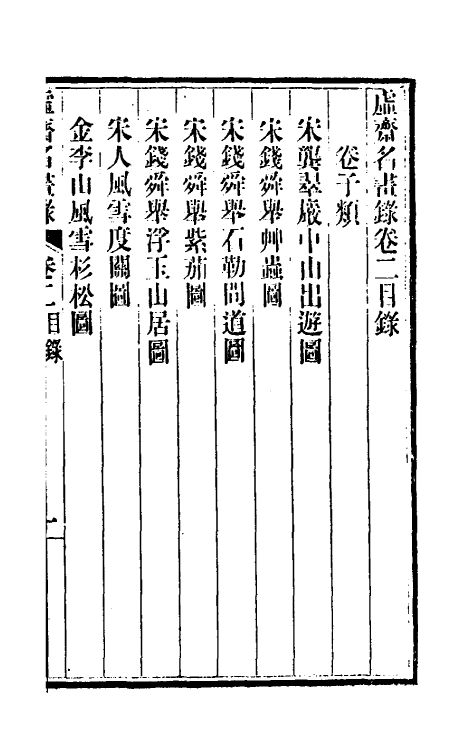 虛齋名畫錄卷二目錄
卷子類
宋龔翠巖中山出遊圖
宋錢舜舉艸蟲圖
宋錢舜舉石勒問道圖
宋錢舜舉紫茄圖
宋錢舜舉浮玉山居圖
宋人風雪度關圖
金李山風雪杉松圖
虛齋名畫錄 卷二目錄 一